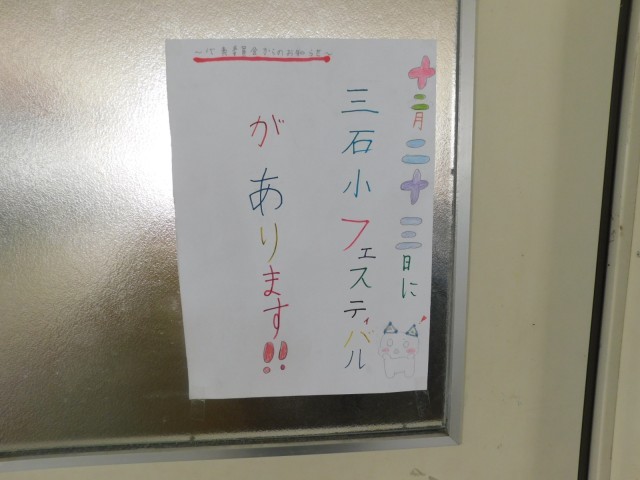 ～代表委員会からのお知らせ～
十二月二十三日に
三石小フェスティバル
があります!!